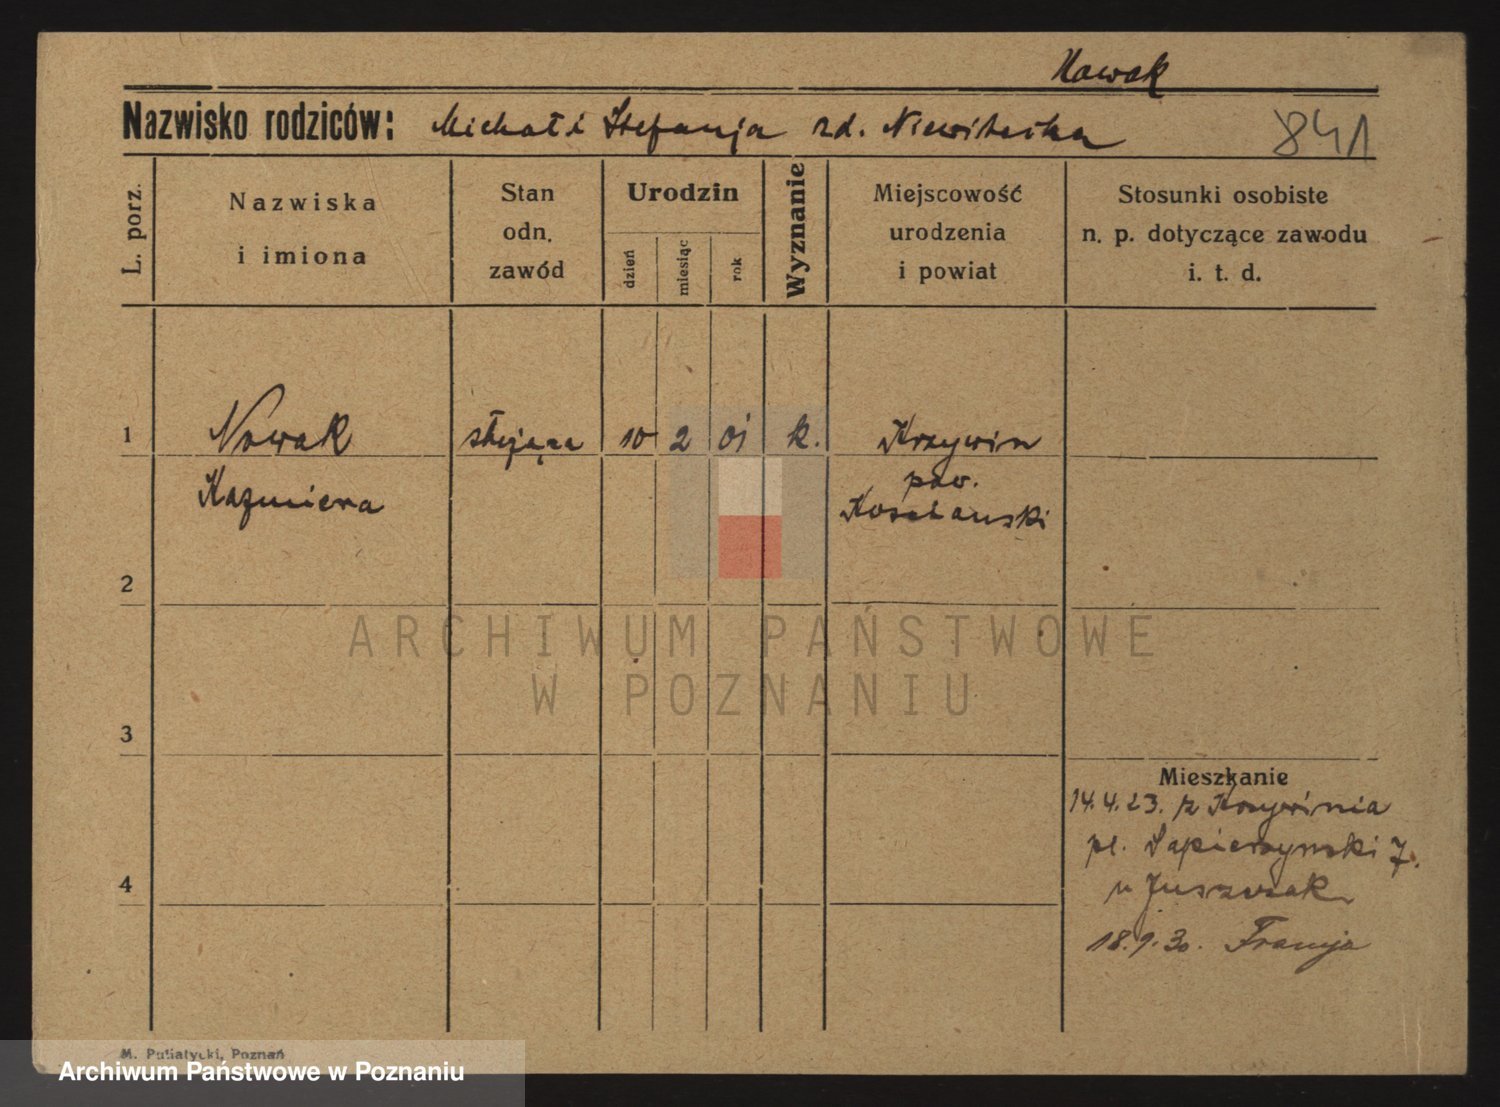 Nowak
Nazwisko rodziców: Michał i Stefanja zd. Niewitecka
841
L. porz.
Nazwiska
i imiona
Stan
odn.
zawód
Urodzin
dzień
miesiąc
rok
Wyznanie
Miejscowość
urodzenia
i powiat
Stosunki osobiste
n. p. dotyczące zawodu
i. t. d.
1
Nowak
służąca
10
2
01
k.
Krzywin
Kazmiera
pow.
Kościański
2
3
4
Mieszkanie
14.4.23. z Krzywinia
pl. Sapieżyński 7.
u Juszczak
18.9.30. Francja
M. Putiatycki, Poznań
ARCHIWUM PAŃSTWOWE
W POZNANIU
Archiwum Państwowe w Poznaniu